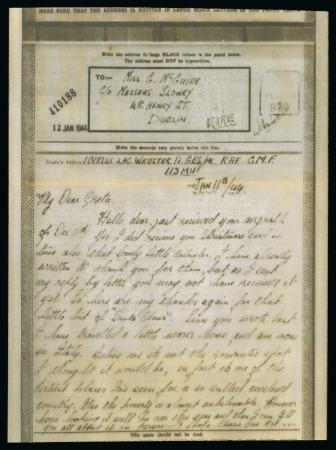 MAKE SURE THAT THE ADDRESS IS WRITTEN IN LARGE BLOCK LETTERS IN THE PANEL
Write the address in large BLOCK letters in the panel below.
The address must NOT be typewritten.
TO:- MISS G. McGUIRE
C/O MESSERS SLOWEY
HENRY ST.
DUBLIN
EIRE
410188
12 JAN 1944
Write the message very plainly below this line.
Sender's Address LAC WEBSTER. RAF C.M.F.
113 MU
JAN 11th/44
My Dear Greta,
Hello dear, just received your airgraph
of Dec 11th Yes I did receive you Christmas card in
time also that lovely little calendar. I have already
written to thank you for them, but as I sent
my reply by letter you may not have received it
yet. So here are my thanks again for that
little bit of "Santa Claus". Since you wrote last
I have travelled a little nearer home and am now
in Italy. Believe me its not the romantic spot
I thought it would be, in fact its one of the
places I've seen for a so called civilised
country. Also the poverty is almost unbelievable. However
here's hoping it will be over soon and then I can tell
you all about it in person. I hope, there's one
This space should not be used.